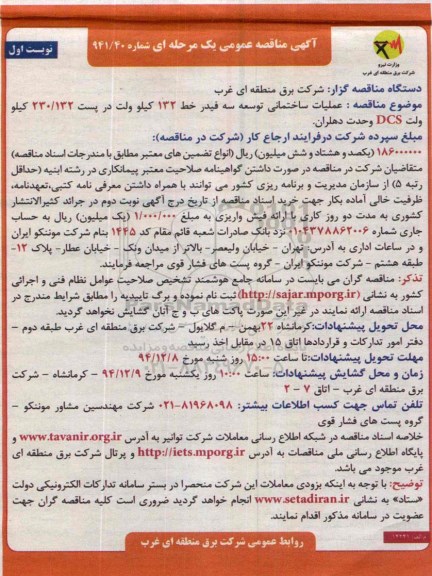 آگهی مناقصه عمومی یک مرحله ای شماره ۹۴۱/۴۰
نوبت اول
وزارت نیرو
شرکت برق منطقه ای غرب
دستگاه مناقصه گزار: شرکت برق منطقه ای غرب
موضوع مناقصه : عملیات ساختمانی توسعه سه فیدر خط ۱۳۲ کیلو ولت در پست ۲۳۰/۱۳۲ کیلو
ولت DCS وحدت دهلران.
مبلغ سپرده شرکت درفرایند ارجاع کار (شرکت در مناقصه):
۱۸۶۰۰۰۰۰۰ (یکصد و هشتاد و شش میلیون) ریال (انواع تضمین های معتبر مطابق با مندرجات اسناد مناقصه)
متقاضیان شرکت در مناقصه در صورت داشتن گواهینامه صلاحیت معتبر پیمانکاری در رشته ابنیه (حداقل
رتبه ۵) از سازمان مدیریت و برنامه ریزی کشور می توانند با همراه داشتن معرفی نامه کتبی،تعهدنامه،
ظرفیت خالی آماده بکار جهت خرید اسناد مناقصه از تاریخ درج آگهی نوبت دوم در جرائد کثیرالانتشار
کشوری به مدت دو روز کاری با ارائه فیش واریزی به مبلغ ۱/۰۰۰/۰۰۰ (یک میلیون) ریال به حساب
جاری شماره ۰۱۰۴۳۷۸۸۶۲۰۰۶ نزد بانک صادرات شعبه قائم مقام کد ۱۴۴۵ بنام شرکت موننکو ایران
و در ساعات اداری به آدرس: تهران - خیابان ولیعصر- بالاتر از میدان ونک - خیابان عطار- پلاک ۱۲-
طبقه هشتم - شرکت موننکو ایران - گروه پست های فشار قوی مراجعه فرمایند.
تذکر: مناقصه گران می بایست در سامانه جامع هوشمند تشخیص صلاحیت عوامل نظام فنی و اجرائی
کشور به نشانی (http://sajar.mporg.ir) ثبت نام نموده و برگ تاییدیه را مطابق شرایط مندرج در
اسناد مناقصه ارائه نمایند در غیر این صورت پاکت های ب و ج آنان گشایش نخواهد گردید.
محل تحویل پیشنهادات:کرمانشاه ۲۲بهمن -۰ م گلاپول - شرکت برق منطقه ای غرب طبقه دوم -
دفتر امور تدارکات و قراردادها اتاق ۱۵ در مقابل اخذ رسید
مهلت تحویل پیشنهادات:تا ساعت ۱۵:۰۰ روز شنبه مورخ ۹۴/۱۲/۸
زمان و محل گشایش پیشنهادات: ساعت ۱۰:۰۰ روز یکشنبه مورخ ۹۴/۱۲/۹ - کرمانشاه - شرکت
برق منطقه ای غرب - اتاق ۷ - ۲
تلفن تماس جهت کسب اطلاعات بیشتر: ۸۱۹۶۸۰۹۸-۰۲۱ شرکت مهندسین مشاور موننکو -
گروه پست های فشار قوی
خلاصه اسناد مناقصه در شبکه اطلاع رسانی معاملات شرکت توانیر به آدرس www.tavanir.org.ir و
پایگاه اطلاع رسانی ملی مناقصات به آدرس http://iets.mporg.ir و پرتال شرکت برق منطقه ای
غرب موجود می باشد.
توضیح: با توجه به اینکه بزودی معاملات این شرکت منحصرا در بستر سامانه تدارکات الکترونیکی دولت
«ستاد» به نشانی www.setadiran.ir انجام خواهد گردید ضروری است کلیه مناقصه گران جهت
عضویت در سامانه مذکور اقدام نمایند.
روابط عمومی شرکت برق منطقه ای غرب